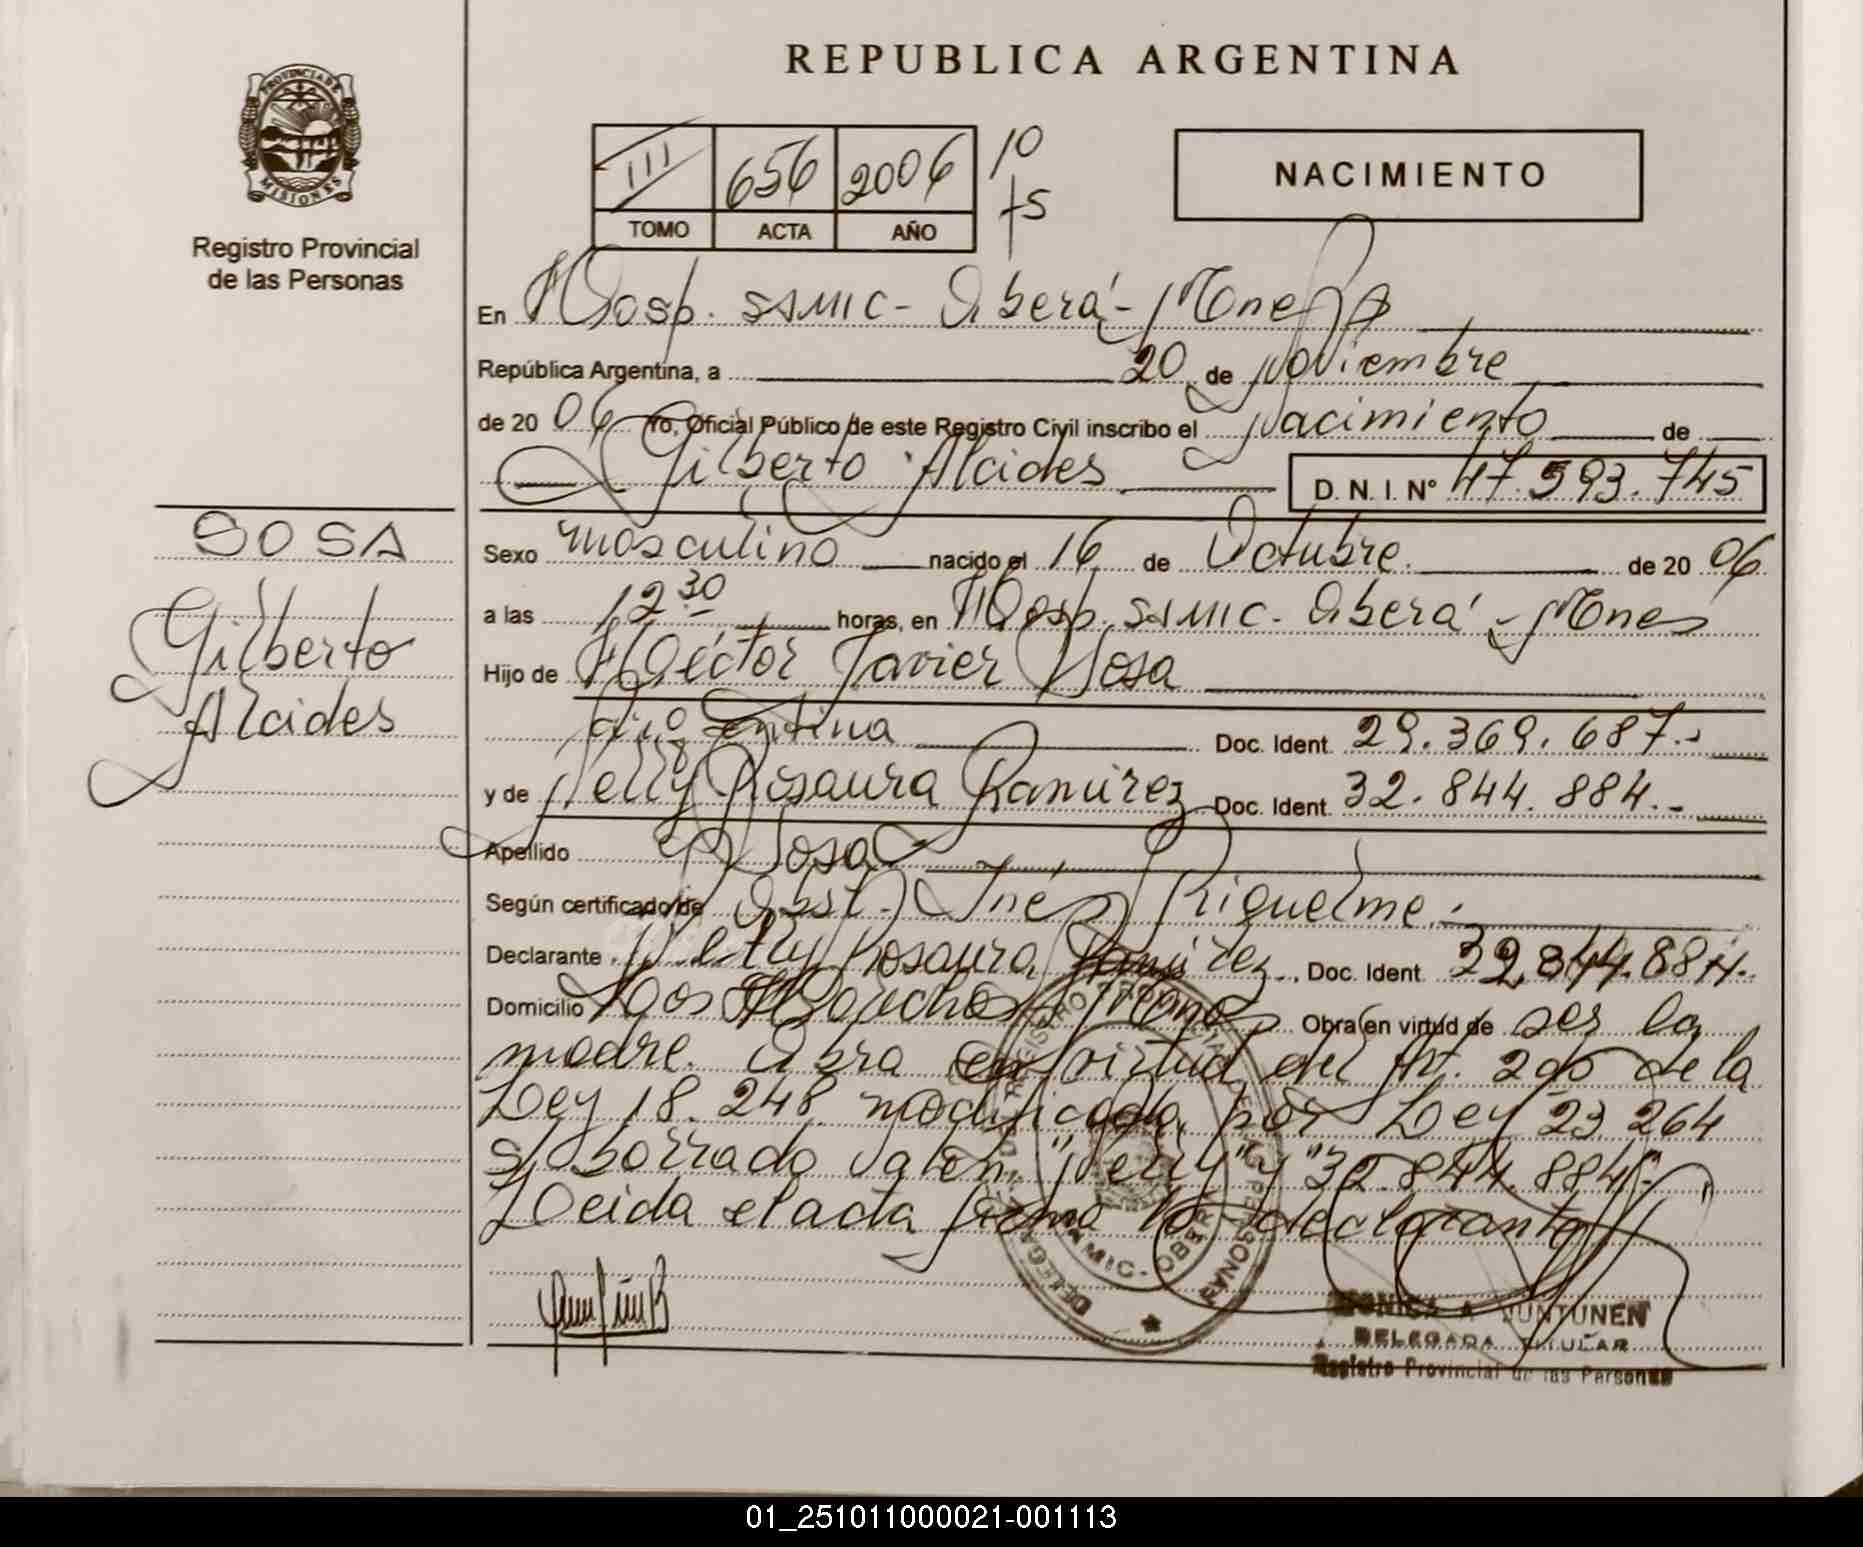 REPUBLICA ARGENTINA
PROVINCIA DE MISIONES
Registro Provincial
de las Personas
III 656 2006 10
TOMO ACTA AÑO
NACIMIENTO
En Hosp. SAMIC - Oberá - Mnes
República Argentina, a 20 de Noviembre
de 20 06 Yo, Oficial Público de este Registro Civil inscribo el Nacimiento de
Gilberto Alcides D. N. I. Nº 47.593.745
SOSA
Gilberto
Alcides
Sexo masculino nacido el 16 de Octubre de 20 06
a las 12 30 horas, en Hosp. SAMIC - Oberá - Mnes
Hijo de Héctor Javier Sosa
argentina Doc. Ident. 29.369.687.-
y de Nelly Rosaura Ramírez Doc. Ident. 32.844.884.-
Apellido Sosa
Según certificado de Obst. Inés Riquelme.
Declarante Nelly Rosaura Ramírez Doc. Ident. 32.844.884.
Domicilio Los Helechos Mnes Obra en virtud de ser la
madre. Obra en virtud del Art. 2do de la
Ley 18.248 modificada por Ley 23264
s/borrado valen "Nelly" y "32.844.884".
Leida el acta firma la declarante
REGISTRO PROVINCIAL DE LAS PERSONAS
SAMIC - OBERA
MONICA A. JUNTUNEN
DELEGADA TITULAR
Registro Provincial de las Personas
01_251011000021-001113